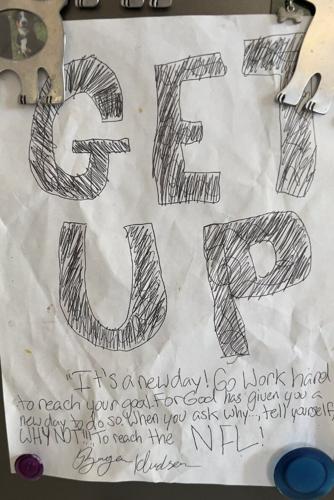 GET
UP
"It's a new day! Go Work hard
to reach your goal. For God has given you a
new day to do so. When you ask why..., tell yourself,
WHY NOT!" To reach the NFL!